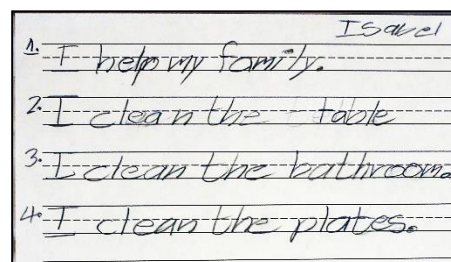 Isabel
1. I help my family.
2. I clean the table
3. I clean the bathroom.
4. I clean the plates.